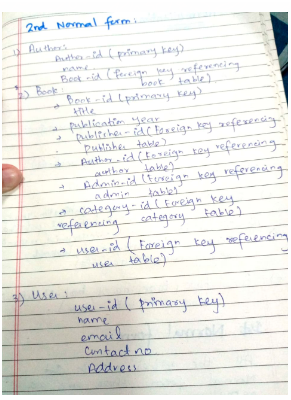 2nd Normal form:
1) Author:
Author-id (primary key)
name
Book-id (foreign key referencing
book table)
2) Book:
→ Book-id (primary key)
title
→ publication year
→ publisher-id (Foreign key referencing
publisher table)
→ Author-id (Foreign key referencing
author table)
→ Admin-id (Foreign key referencing
admin table)
→ category-id (Foreign key
referencing category table)
→ user-id (Foreign key referencing
user table)
3) User:
user-id (primary key)
name
email
Contact no
Address